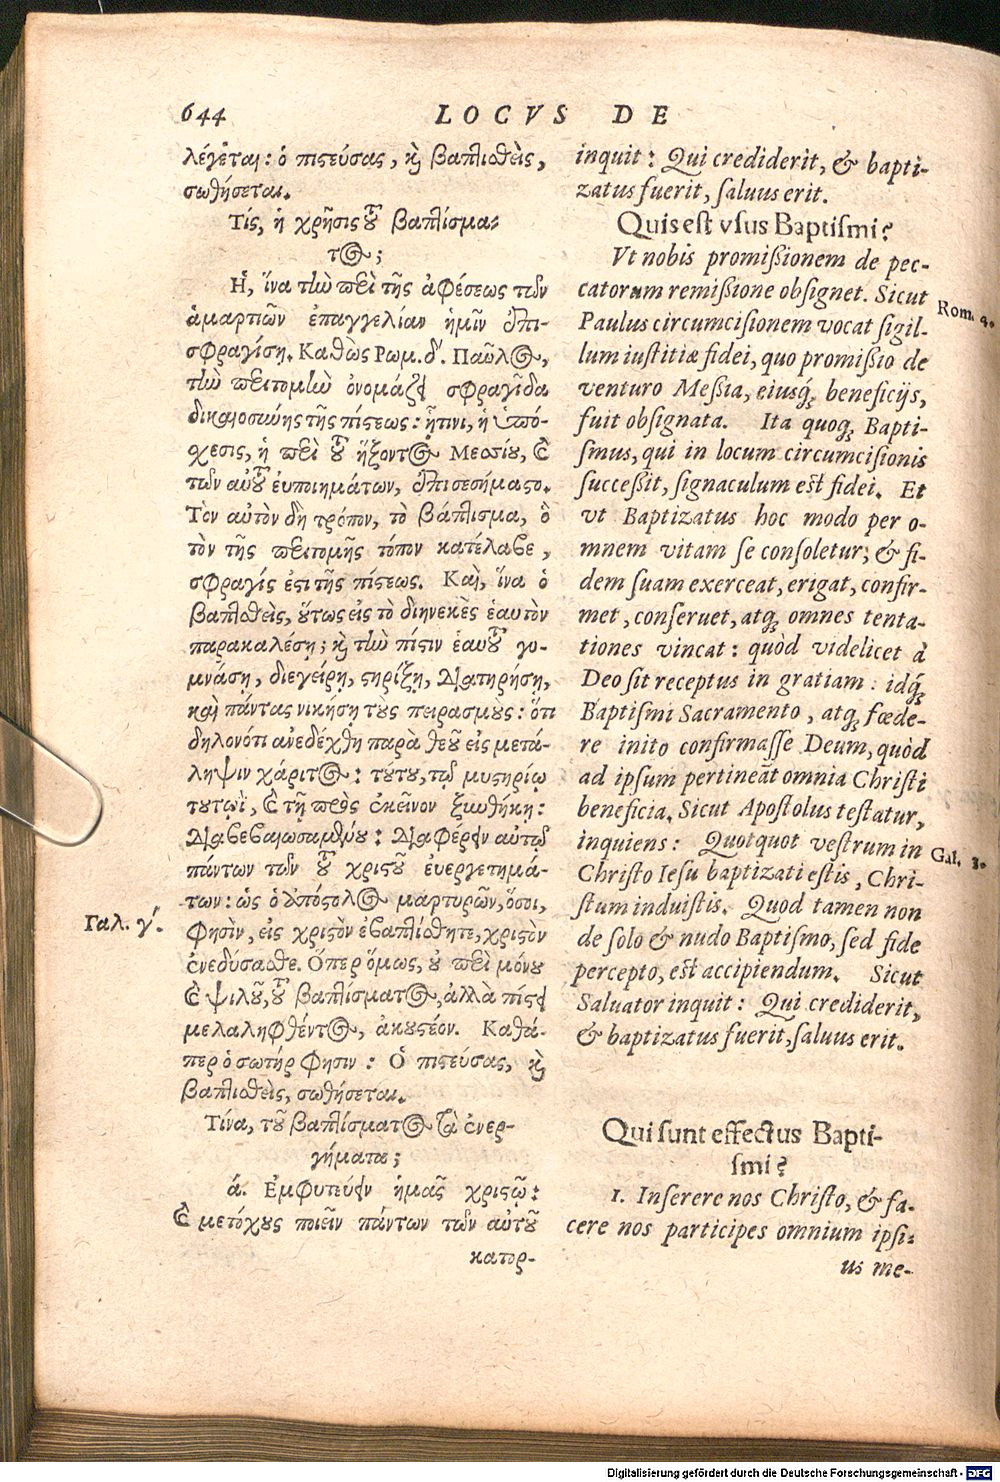 644 LOCVS DE
λέγεται: ὁ πιστεύσας, καὶ βαπτισθεὶς,
σωθήσεται.
Τίς, ἡ χρῆσις τοῦ βαπτίσμα-
τος;
Η῾, ἵνα τὴν περὶ τῆς ἀφέσεως τῶν
ἁμαρτιῶν ἐπαγγελίαν ἡμῖν ἐπι-
σφραγίσῃ. Καθὼς Ρωμ. δ'. Παῦλος,
τὴν περιτομὴν ὀνομάζει σφραγῖδα
δικαιοσύνης τῆς πίστεως: ᾗτινι, ἡ ὑπό-
σχεσις, ἡ περὶ τοῦ ἥξοντος Μεσσίου, καὶ
τῶν αὐτοῦ ἐυποιημάτων, ἐπισεσήμαστο.
Τὸν αὐτὸν δὴ τρόπον, τὸ βάπτισμα, ὃ
τὸν τῆς περιτομῆς τόπον κατέλαβε,
σφραγίς ἐστι τῆς πίστεως. Καὶ, ἵνα ὁ
βαπτισθεὶς, οὕτως εἰς τὸ διηνεκὲς ἑαυτὸν
παρακαλέσῃ; καὶ τὴν πίστιν ἑαυτοῦ γυ-
μνάσῃ, διεγείρῃ, στηρίξῃ, διατηρήσῃ,
καὶ πάντας νικήσῃ τοὺς πειρασμούς: ὅτι
δηλονότι ἀνεδέχθη παρὰ θεοῦ εἰς μετά-
ληψιν χάριτος: τούτου, τῷ μυστηρίῳ
τουτῳῒ, καὶ τῇ πρὸς ἐκεῖνον ξυνθήκῃ:
διαβεβαιωσαμένου: διαφέρειν αὐτῷ
πάντων τῶν τοῦ χριστοῦ ἐυεργετημά-
των: ὡς ὁ ἀπόστολος μαρτυρῶν, ὅσοι,
Γαλ. γ'.
φησὶν, εἰς χριστὸν ἐβαπτίσθητε, χριστὸν
ἐνεδύσασθε. Ὅπερ ὅμως, οὐ περὶ μόνου
καὶ ψιλοῦ, τοῦ βαπτίσματος, ἀλλὰ πίστει
μεταληφθέντος, ἀκουστέον. Καθά-
περ ὁ σωτήρ φησιν: Ὁ πιστεύσας, καὶ
βαπτισθεὶς, σωθήσεται.
Τίνα, τοῦ βαπτίσματος τὰ ἐνερ-
γήματα;
ά. Εμφυτεύειν ἡμᾶς χριστῷ:
καὶ μετόχους ποιεῖν πάντων τῶν αὐτοῦ
κατορ-
inquit: Qui crediderit, & bapti-
zatus fuerit, saluus erit.
Quis est vsus Baptismi?
Vt nobis promissionem de pec-
catorum remissione obsignet. Sicut
Rom. 4.
Paulus circumcisionem vocat sigil-
lum iustitiæ fidei, quo promissio de
venturo Messia, eiusq́; beneficijs,
fuit obsignata. Ita quoq; Bapti-
smus, qui in locum circumcisionis
successit, signaculum est fidei. Et
vt Baptizatus hoc modo per o-
mnem vitam se consoletur; & fi-
dem suam exerceat, erigat, confir-
met, conseruet, atq; omnes tenta-
tiones vincat: quòd videlicet à
Deo sit receptus in gratiam: idq́;
Baptismi Sacramento, atq; fœde-
re inito confirmasse Deum, quòd
ad ipsum pertineāt omnia Christi
beneficia. Sicut Apostolus testatur,
inquiens: Quotquot vestrum in
Gal. 3.
Christo Iesu baptizati estis, Chri-
stum induistis. Quod tamen non
de solo & nudo Baptismo, sed fide
percepto, est accipiendum. Sicut
Saluator inquit: Qui crediderit,
& baptizatus fuerit, saluus erit.
Qui sunt effectus Bapti-
smi?
1. Inserere nos Christo, & fa-
cere nos participes omnium ipsi-
us me-
Digitalisierung gefördert durch die Deutsche Forschungsgemeinschaft - DFG